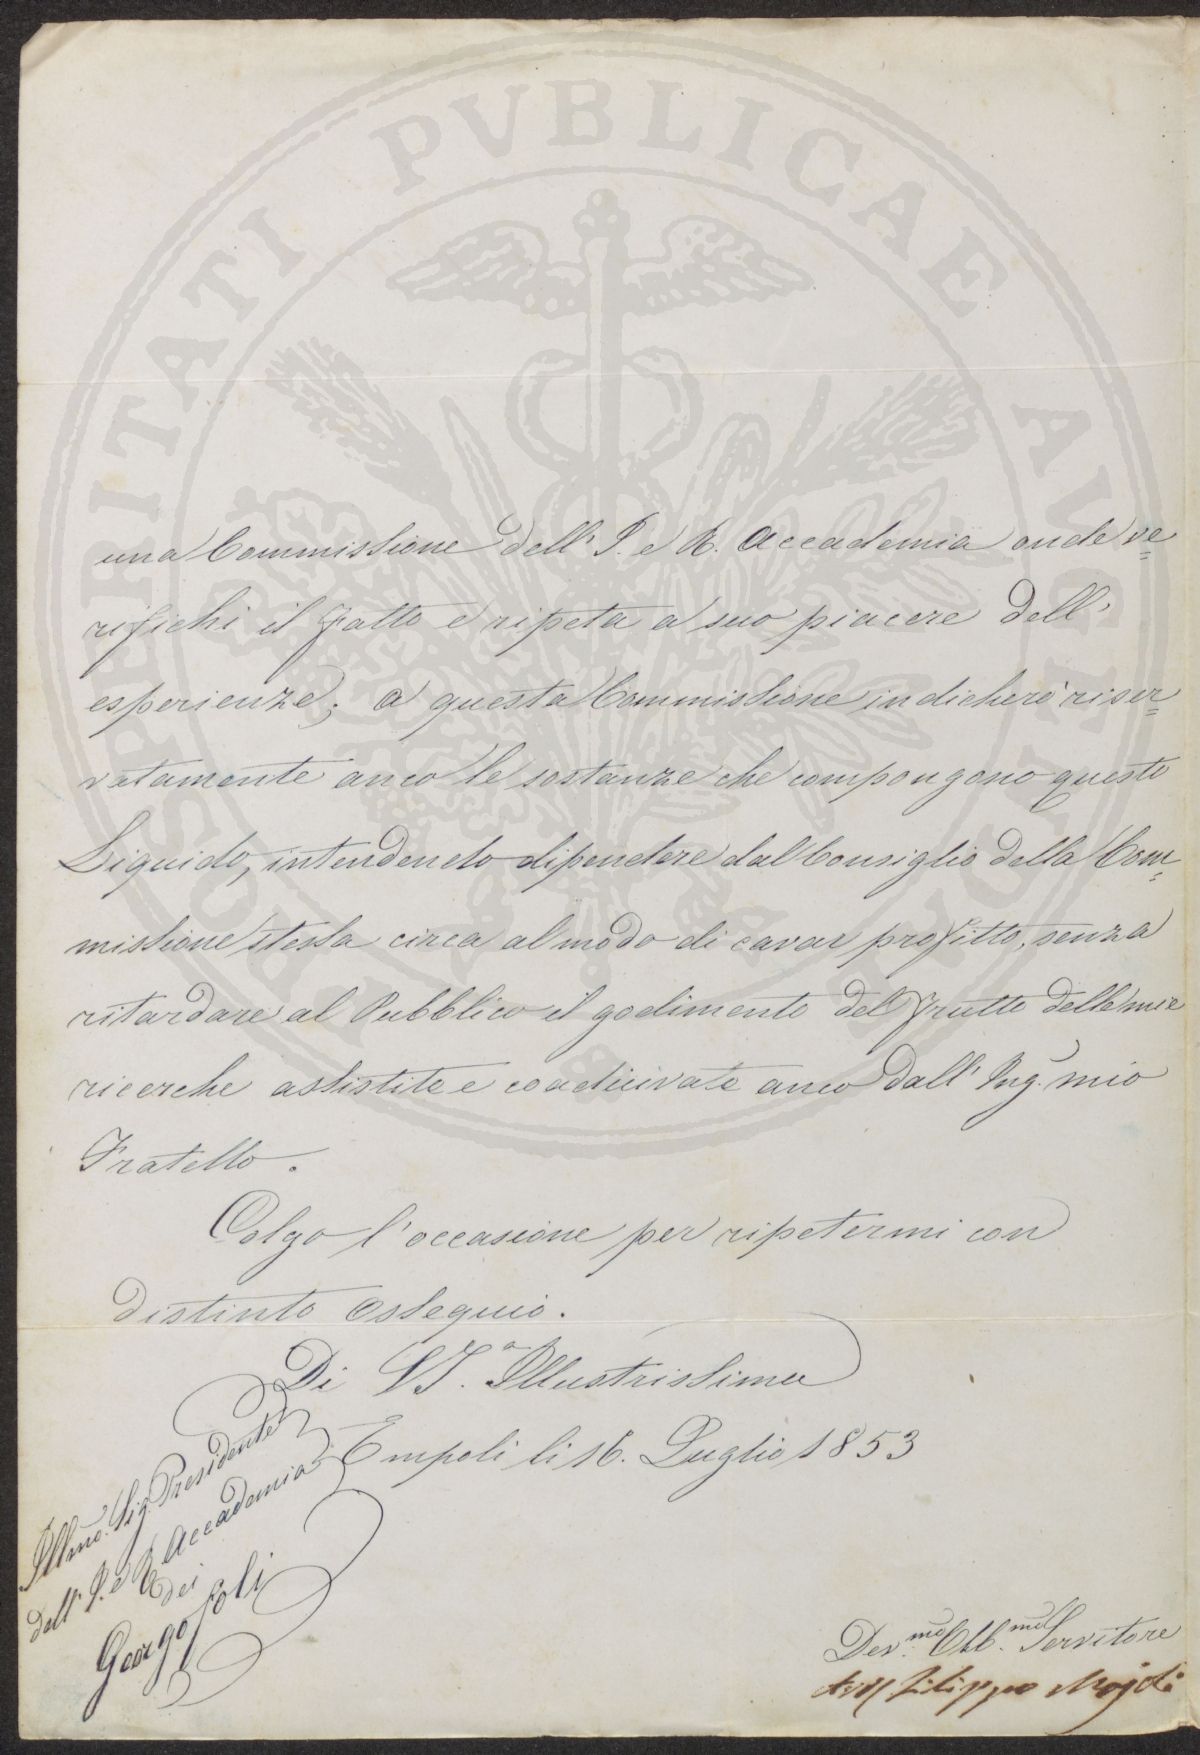 PROSPERITATI PVBLICAE AVGENDAE
una Commissione dell' I. e R. Accademia onde ve=
rifichi il fatto e ripeta a suo piacere dell'
esperienze; a questa Commissione indicherò riser=
vatamente anco le sostanze che compongono questo
Liquido, intendendo dipendere dal Consiglio della Com=
missione stessa circa al modo di cavar profitto, senza
ritardare al Pubblico il godimento del frutto delle mie
ricerche assistite e coadiuvate anco dall' Ing. mio
Fratello.
Colgo l'occasione per ripetermi con
distinto Ossequio.
Di V.S. Illustrissima
Empoli li 16. Luglio 1853
Illmo. Sig. Presidente
dell' I. e R. Accademia
dei
Georgofili
Dev.mo Obb.mo Servitore
Filippo